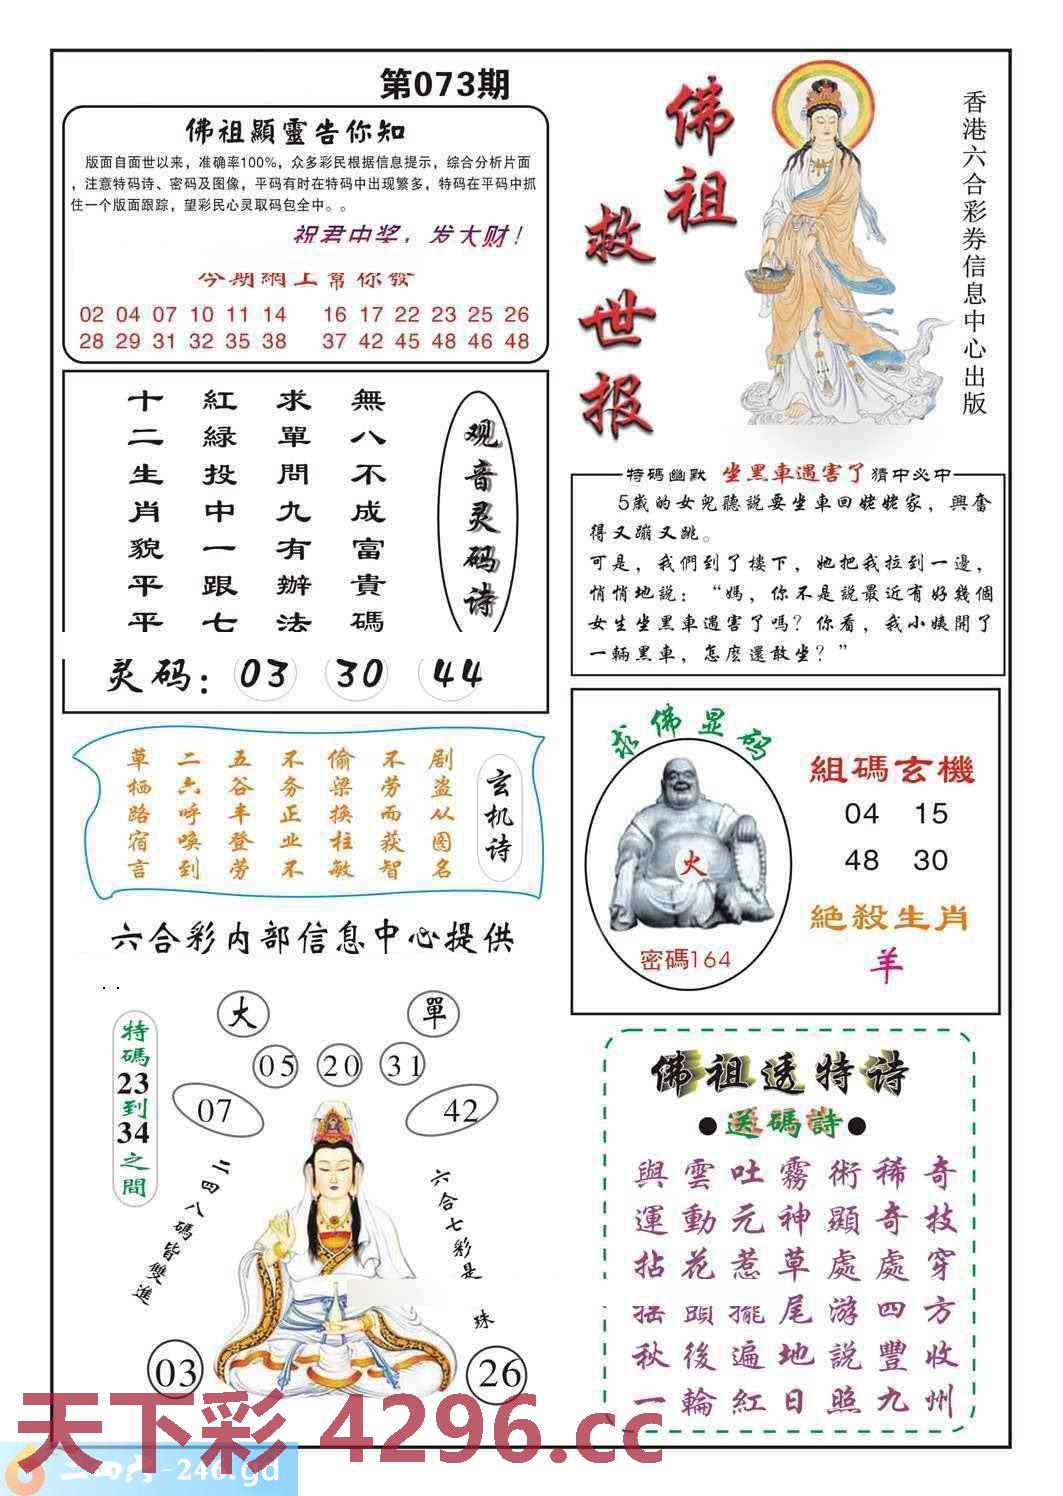 第073期
佛祖顯靈告你知
版面自面世以来，准确率100%，众多彩民根据信息提示，综合分析片面
，注意特码诗、密码及图像，平码有时在特码中出现繁多，特码在平码中抓
住一个版面跟踪，望彩民心灵取码包全中。。
祝君中奖，发大财！
今期網上幫你發
02 04 07 10 11 14 16 17 22 23 25 26
28 29 31 32 35 38 37 42 45 48 46 48
佛祖
救世报
香港六合彩券信息中心出版
观音灵码诗
無八不成富貴碼
求單問九有辦法
紅綠投中一跟七
十二生肖貌平平
灵码：03 30 44
特碼幽默 坐黑車遇害了 猜中必中
5歲的女兒聽説要坐車回姥姥家，興奮
得又蹦又跳。
可是，我們到了樓下，她把我拉到一邊，
悄悄地説：“媽，你不是説最近有好幾個
女生坐黑車遇害了嗎？你看，我小姨開了
一輛黑車，怎麽還敢坐？”
玄机诗
剧盗从图名
不劳而获智
偷梁换柱敏
不务正业不
五谷丰登劳
二六呼唤到
草栖路宿言
求佛显码
火
密碼164
組碼玄機
04 15
48 30
絕殺生肖
羊
六合彩内部信息中心提供
大
單
05 20 31
07
42
特碼23到34之間
二四八碼皆雙進
六合七彩是
珠
03
26
佛祖透特诗
●送碼詩●
與雲吐霧術稀奇
運動元神顯奇技
拈花惹草處處穿
摇頭擺尾游四方
秋後遍地説豐收
一輪紅日照九州
天下彩 4296.cc
二四六-246.gd